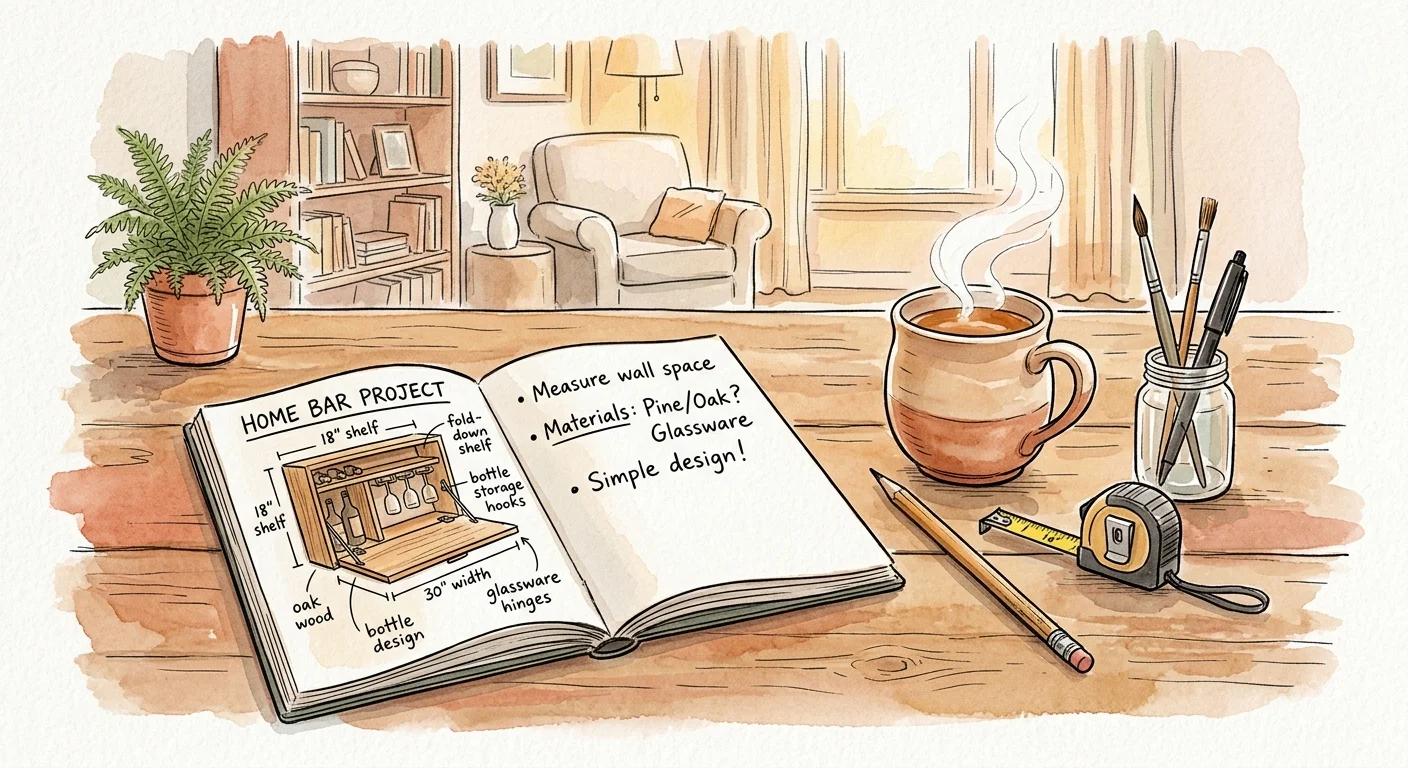 HOME BAR PROJECT
18" shelf
fold-
down
shelf
18"
shelf
bottle
storage
hooks
30" width
glassware
hinges
oak
wood
bottle
design
• Measure wall space
• Materials: Pine/Oak?
Glassware
• Simple design!